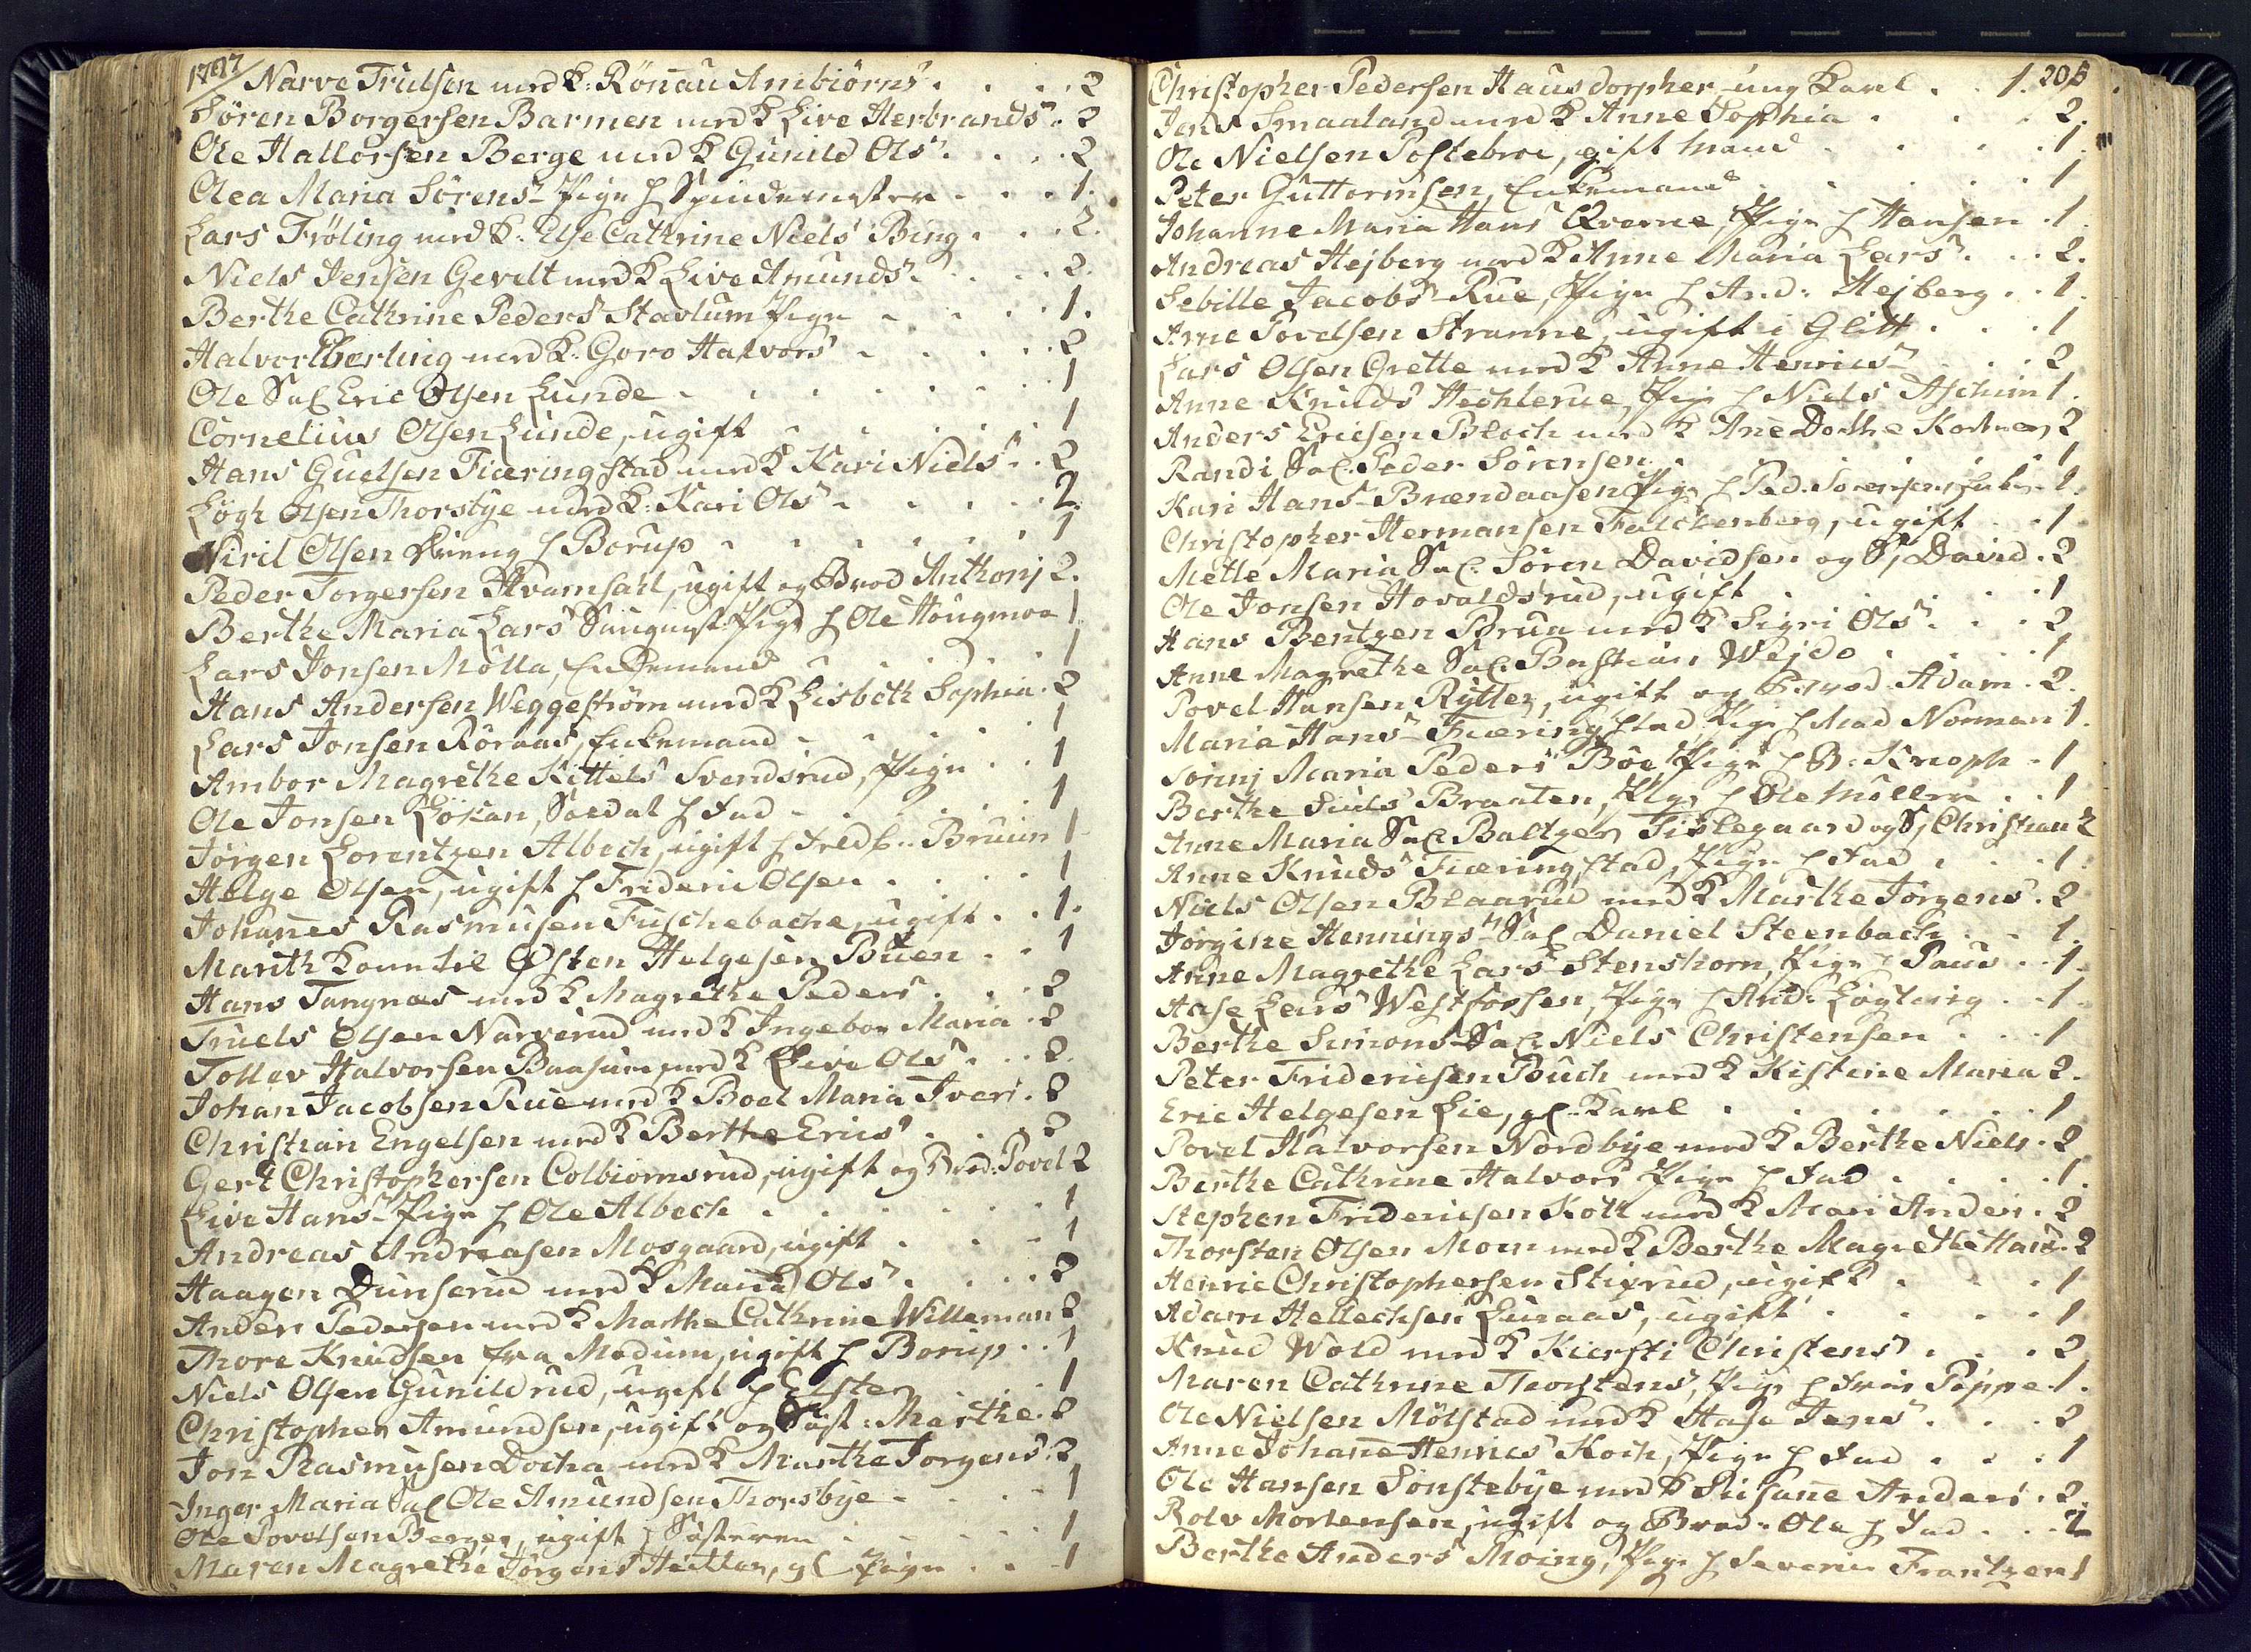 1797
Narve Trulsen med K: Rönau Ambiörns . . . . 2
Sören Borgersen Barmen med K Live Herbrands . 2
Ole Hallorsen Berge med K Gunild Ols . . . . 2
Olea Maria Sörens Pige h Spindemester . . . 1.
Lars Fröling med K. Else Cathrine Niels Bing . . . 2.
Niels Jensen Gevelt med K Live Amunds . . . . 2.
Berthe Cathrine Peders Stavlum Pige . . . . 1.
Halvor Eberling med K: Goro Halvors . . . . 2
Ole Sal Eric Olsen Lunde . . . . . 1
Cornelius Olsen Lunde, ugift . . . . . 1
Hans Guelsen Fiæringstad med K Kari Niels . . 2
Lögh Olsen Thorstye med K: Kari Ols . . . . 2.
Niril Olsen h Borup . . . . . 1
Peder Torgersen Hvamsahl, ugift og Brod Anthonj 2.
Berthe Maria Lars Pige h Ole Hougmoe 1
Lars Jonsen Mölla, Enkemand . . . . 1
Hans Andersen Weggeström med K Lisbeth Sophia . 2
Lars Jonsen Röraas, Enkemand . . . . 1
Ambor Magrethe Kittels Svendsrud, Pige . . 1
Ole Jonsen Lökan, Soldat h Fad . . . . 1
Jörgen Lorentzen Albech, ugift h Bruun 1
Helge Olsen, ugift h Frideric Olsen . . . . 1
Johañes Rasmusen Fuschebache, ugift . . 1.
Marith Kone til Østen Helgesen Buen . . 1
Hans Tangnæs med K Magrethe Peders . . . 2
Truels Olsen Narverud med K Ingebor Maria . 2
Tollev Halvorsen Baasum med K Live Ols . . . 2.
Johan Jacobsen Rue med K Boel Maria Ivers . 2
Christian Engelsen med K Berthe Erics . . . 2
Gert Christophersen Colbiornsrud, ugift og Brod: Povel 2
Live Hans Pige h Ole Albech . . . . . 1
Andreas Andreasen Mosgaard, ugift . . . 1
Haagen Dunserud med K Maria Ols . . . . 2
Anders Pedersen med K Marthe Cathrine Willeman 2
Thore Knudsen fra Modum, ugift h Borup . . 1
Niels Olsen Gunildrud, ugift h Elster . . . 1
Christopher Amundsen, ugift og Söst: Marthe . 2
Jon Rasmusen Docha med K Marthe Jorgens . 2
Inger Maria Sal Ole Amundsen Thorsbye . . . . 1
Ole Povelsen Berger, ugift h Sösteren . . . . 1
Maren Magrethe Jörgens Hütter, gl Pige . . . 1
205
Christopher Pedersen Hausdorpher, ung Karl . . 1.
Jens Smaaland med K Anne Sophia . . . . 2.
Ole Nielsen Postebroe, gift Mand . . . . 1.
Peter Guttormsen, Enkemand . . . . 1
Johanne Maria Hans Qverne, Pige h Hansen . 1.
Andreas Hejberg med K Anne Maria Lars . . . 2.
Sebille Jacobs Rue, Pige h And: Hejberg . . 1.
Arne Povelsen Stranne, ugift i Glitt . . . 1
Lars Olsen Grette med K Anne Henrics . . . 2
Anne Knuds Hechlerue, Pige h Niels Aschim 1.
Anders Ericsen Bloch med K Ane Dorthe 2
Randi Sal: Peder Sörensen . . . . 1
Kari Hans Brændaasen Pige h Ped: Sörensens Enke . 1.
Christopher Hermansen Falckenberg, ugift . . 1.
Mette Maria Sal. Sören Davidsen og Sj David . 2
Ole Jonsen Hovaldsrud, ugift . . . . . 1
Hans Bentzen Brun med K Sigri Ols . . . 2
Anne Magrethe Sal: Bastian Wejdo . . . . 1
Povel Hansen Rytter, ugift og Brod Adam . 2.
Maria Hans Fiæringstad, Pige h Mad Norman 1.
Sönnj Maria Peders Böe, Pige h B: Knoph . 1
Berthe Siuls Braaten, Pige h Ole Möllern . . 1
Anne Maria Sal Baltzer Fislegaard og Sj Christian 2
Anne Knuds Fiæringstad, Pige h Fad . . . 1.
Niels Olsen Blaarud med K Marthe Jörgens . 2
Jörgine Hennings Sal Daniel Steenbach . . 1.
Anne Magrethe Lars Stenshorn, Pige h Paus . . 1.
Aase Lars Westfossen, Pige h And: Lögting . . 1.
Berthe Simons Sal: Niels Christensen . . . 1
Peter Fridericsen Buch med K Kistine Maria 2.
Eric Helgesen Lie, gl. Karl . . . . . 1
Povel Halvorsen Nordbye med K Berthe Niels . 2.
Berthe Cathrine Halvors Pige h Fad . . . . 1.
Stephen Fridericsen Koth med K Mari Anders . 2
Thorsten Olsen Moen med K Berthe Magrethe Hans . 2
Henric Christophersen Stixrud, ugift . . . 1
Adam Hellechsen Lunaas, ugift . . . . 1
Knud Wold med K Kiersti Christens . . . 2
Maren Cathrine Thorstens, Pige h Iver Poppe . 1.
Ole Nielsen Mölstad med K Aase Jens . . . 2
Anne Johañe Henrics Koch, Pige h Fad . . . 1
Ole Hansen Sönstebye med K Susañe Anders . 2.
Rolv Mortensen, ugift og Brod: Ole h Fad . . . 2
Berthe Anders Moing, Pige h Severin Frantzen 1